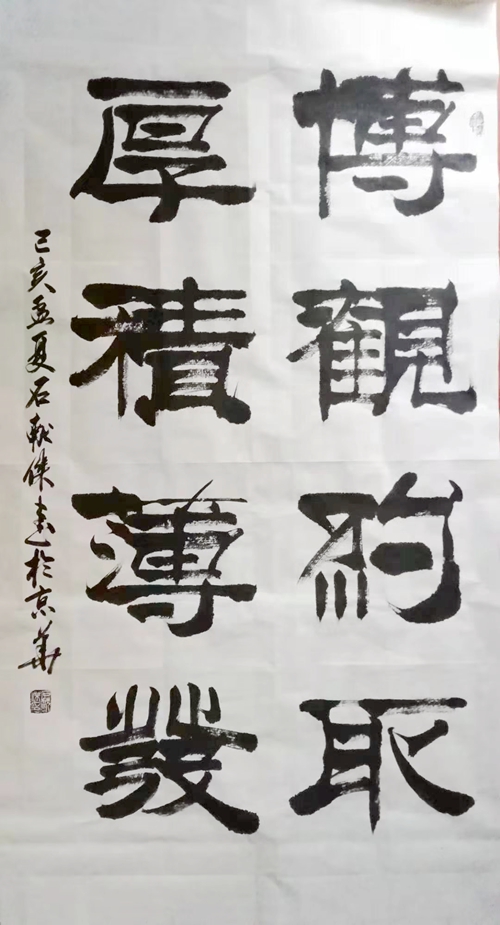 博觀約取
厚積薄發
己亥孟夏石献傑書於京華